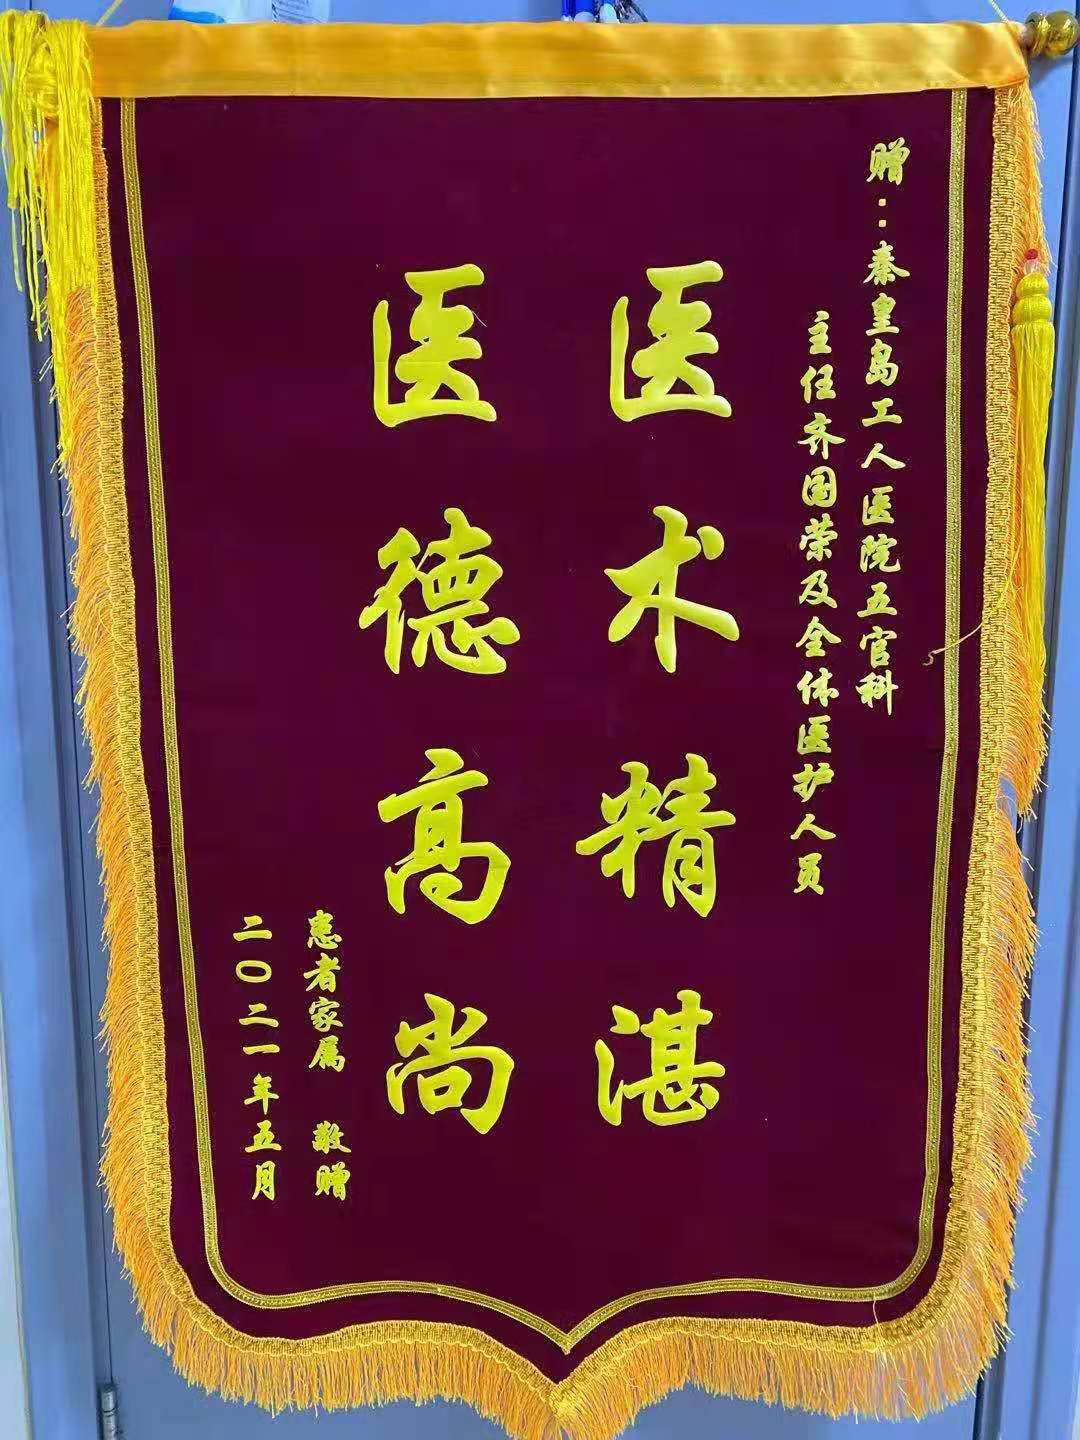 赠：秦皇岛工人医院五官科
主任齐国荣及全体医护人员
医术精湛
医德高尚
患者家属 敬赠
二〇二一年五月